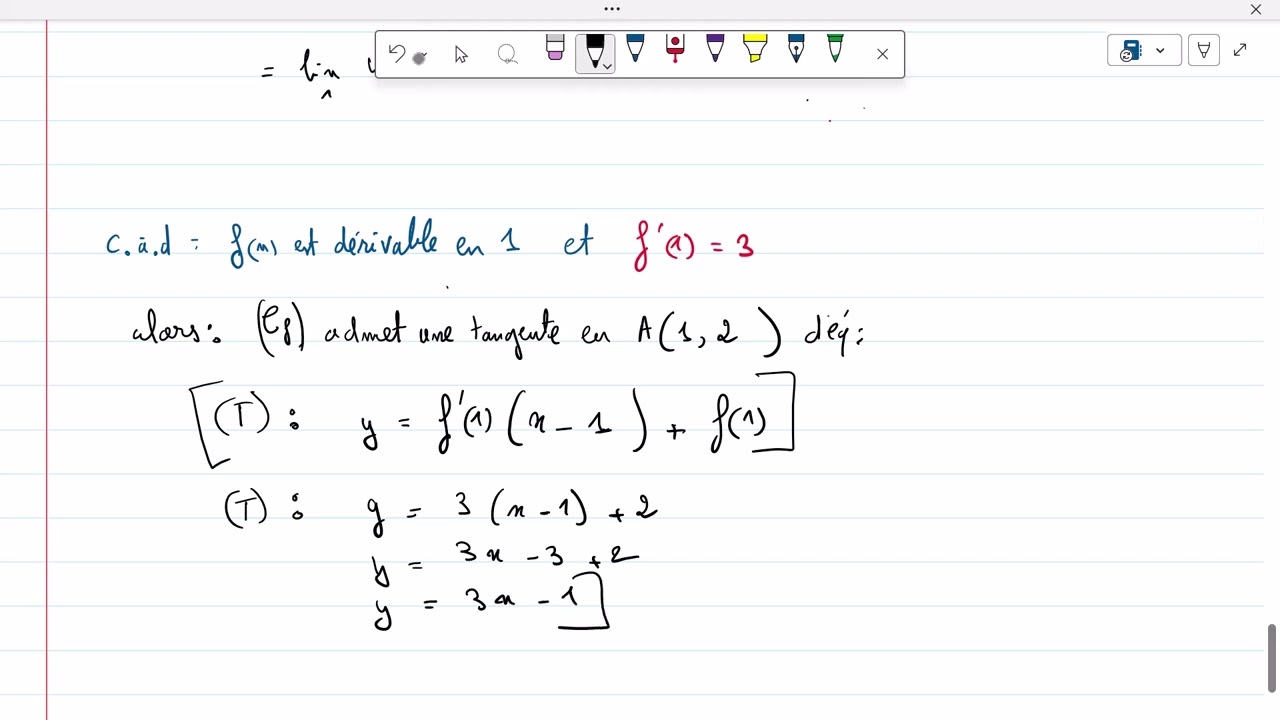 = lim
1
c.à.d : f(x) est dérivable en 1 et f'(1) = 3
alors : (Cf) admet une tangente en A(1, 2) d'éq :
(T) : y = f'(1) (x - 1) + f(1)
(T) : y = 3 (x - 1) + 2
y = 3x - 3 + 2
y = 3x - 1